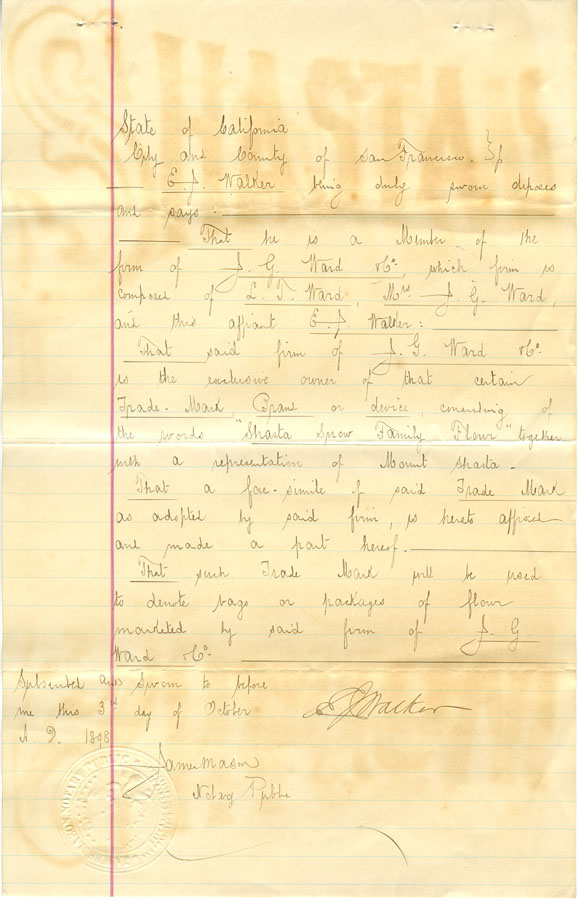 State of California
City and County of San Francisco. } ss.
E. J. Walker being duly sworn deposes
and says:
That he is a Member of the
firm of J. G. Ward & Co., which firm is
composed of L. T. Ward, Mrs J. G. Ward,
and this affiant E. J. Walker:
That said firm of J. G. Ward & Co.
is the exclusive owner of that certain
Trade-Mark, Brand or device, consisting of
the words "Shasta Snow Family Flour" together
with a representation of Mount Shasta.
That a fac-simile of said Trade Mark
as adopted by said firm, is hereto affixed
and made a part hereof.
That such Trade Mark will be used
to denote bags or packages of flour
marketed by said firm of J. G.
Ward & Co.
Subscribed and Sworn to before
me this 3rd day of October
A. D. 1898
E J Walker
James Mason
Notary Public